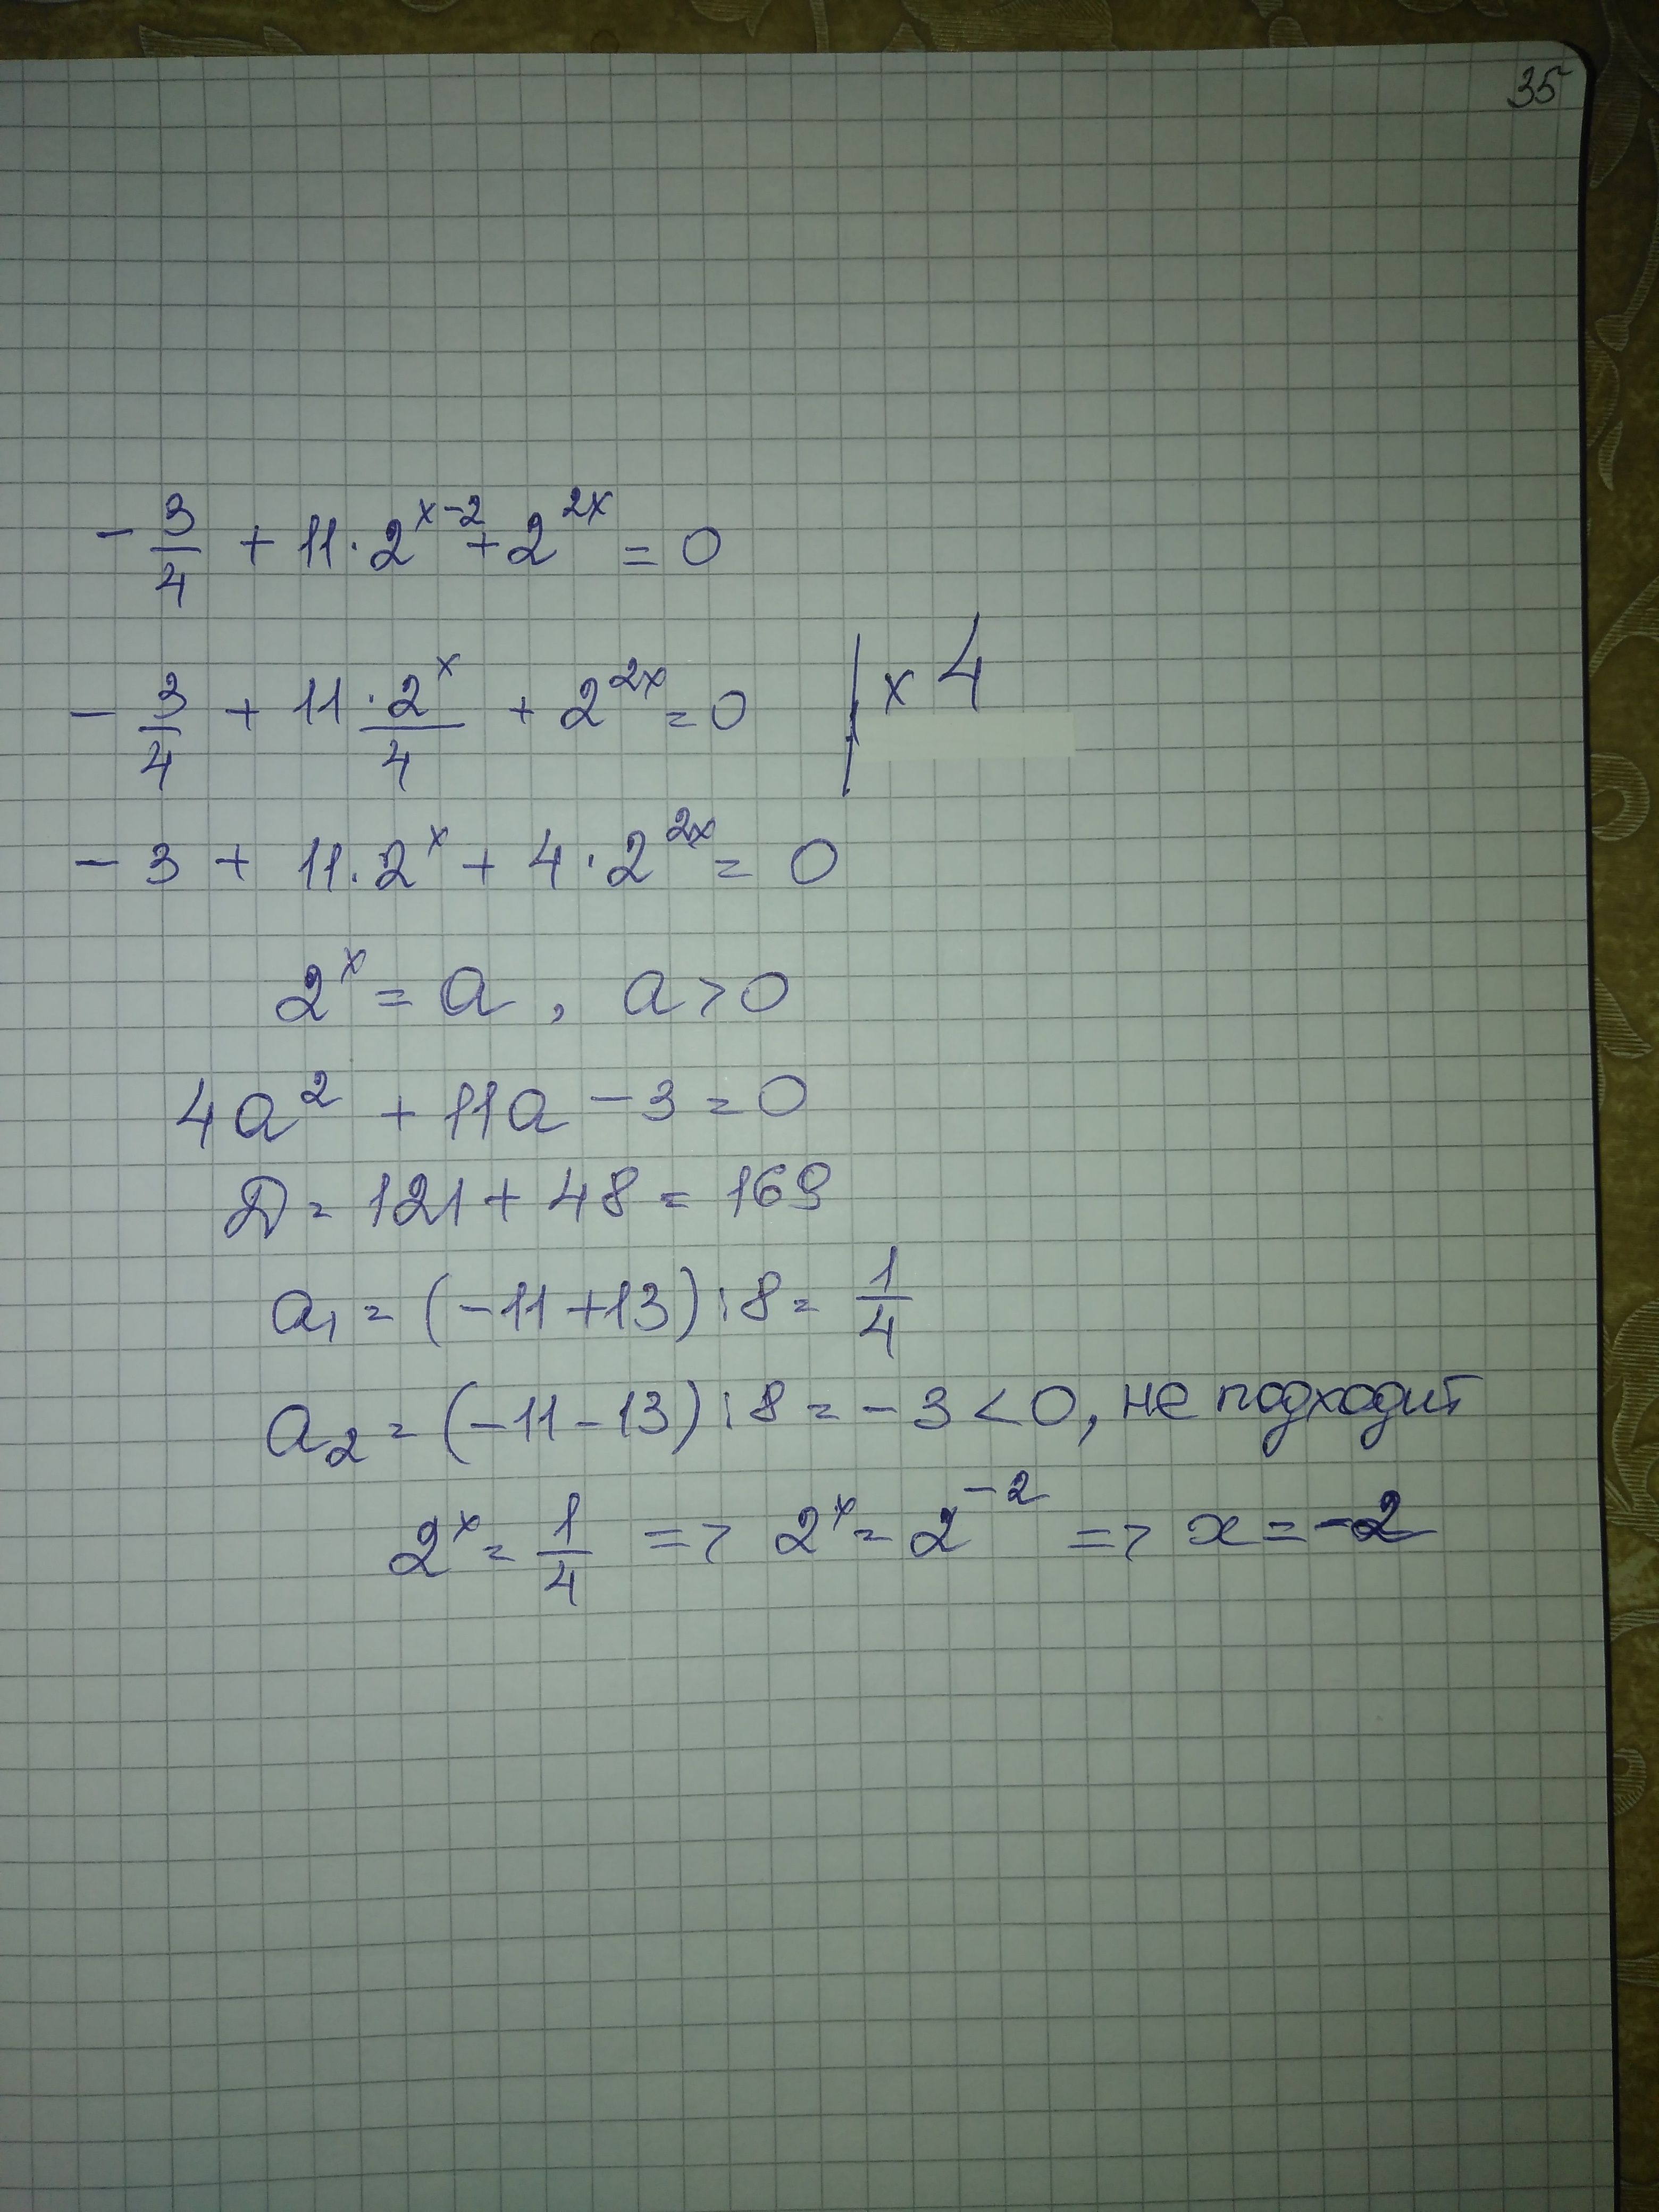 35
- 3/4 + 11 · 2^(x-2) + 2^(2x) = 0
- 3/4 + 11 · 2^x/4 + 2^(2x) = 0 | x 4
- 3 + 11 · 2^x + 4 · 2^(2x) = 0
2^x = a, a > 0
4a^2 + 11a - 3 = 0
D = 121 + 48 = 169
a₁ = (-11 + 13) : 8 = 1/4
a₂ = (-11 - 13) : 8 = - 3 < 0, не подходит
2^x = 1/4 => 2^x = 2^(-2) => x = -2